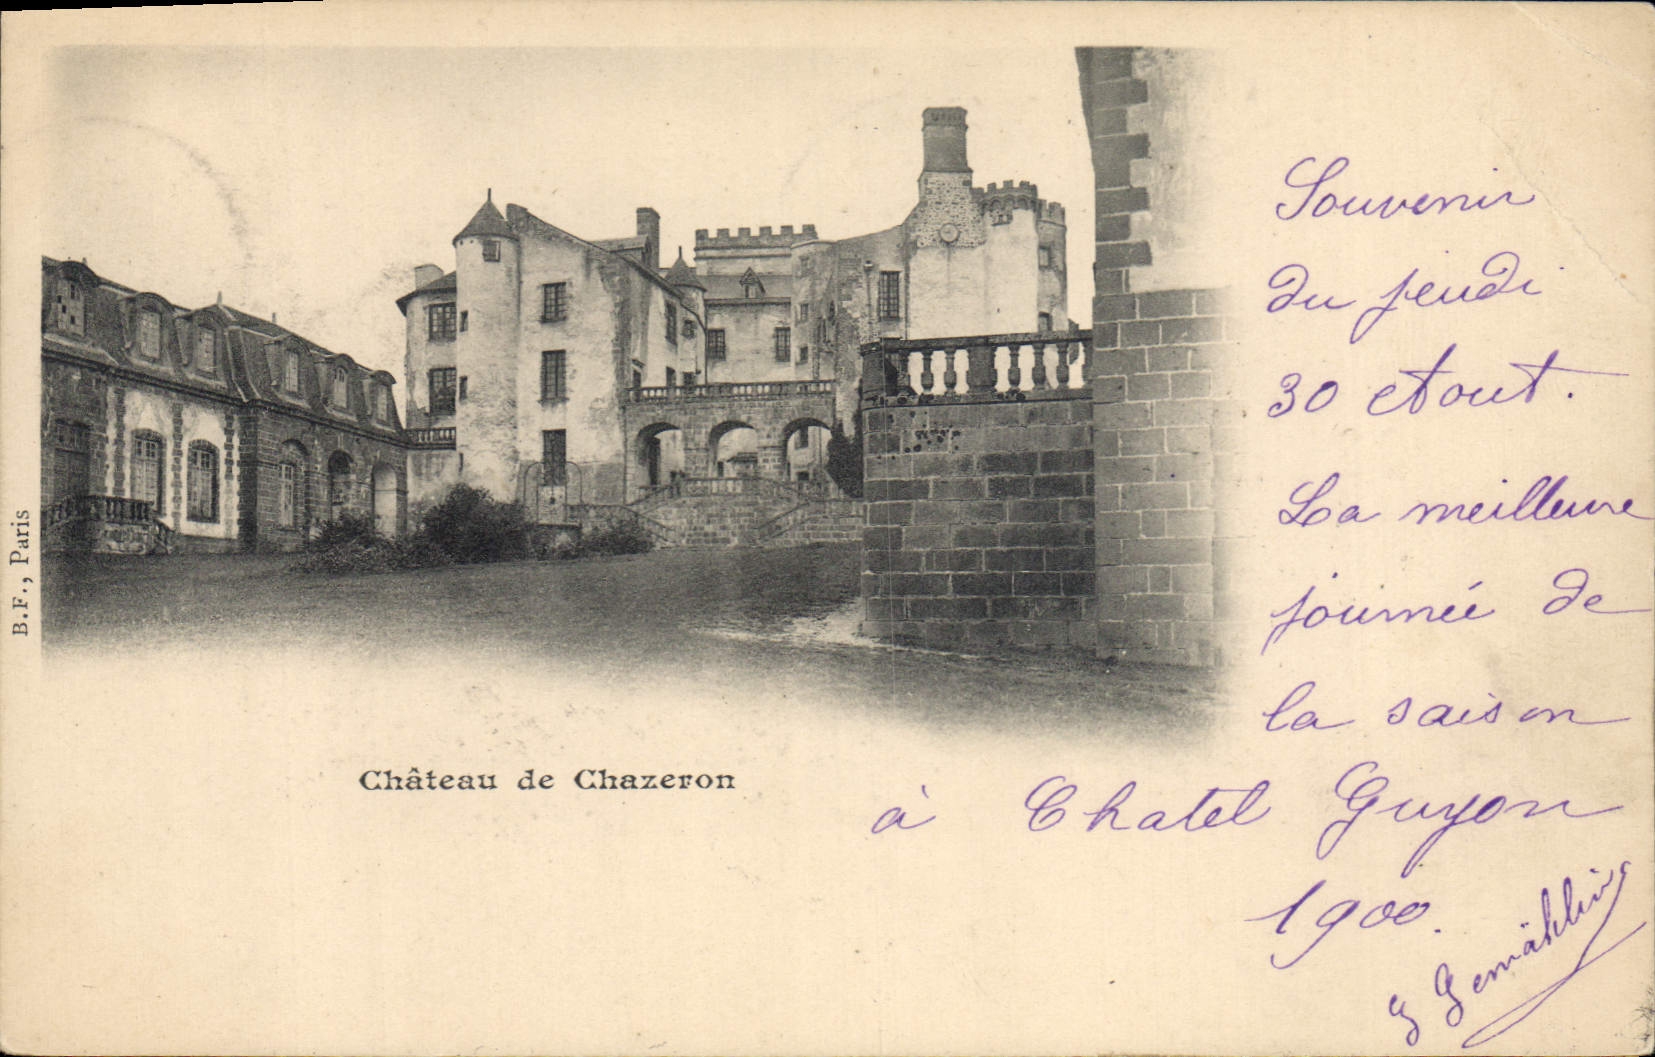 Souvenir
du jeudi
30 Aout.
La meilleure
journée de
la saison
à Chatel Guyon
1900.
G Gemähling
Château de Chazeron
B.F., Paris